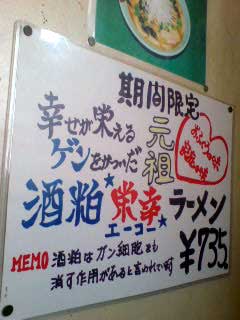 期間限定
元祖
幸せが栄える
ゲンをかついだ
酒粕★栄幸★ラーメン
エーコー
¥735
MEMO 酒粕はガン細胞をも
消す作用があると言われています